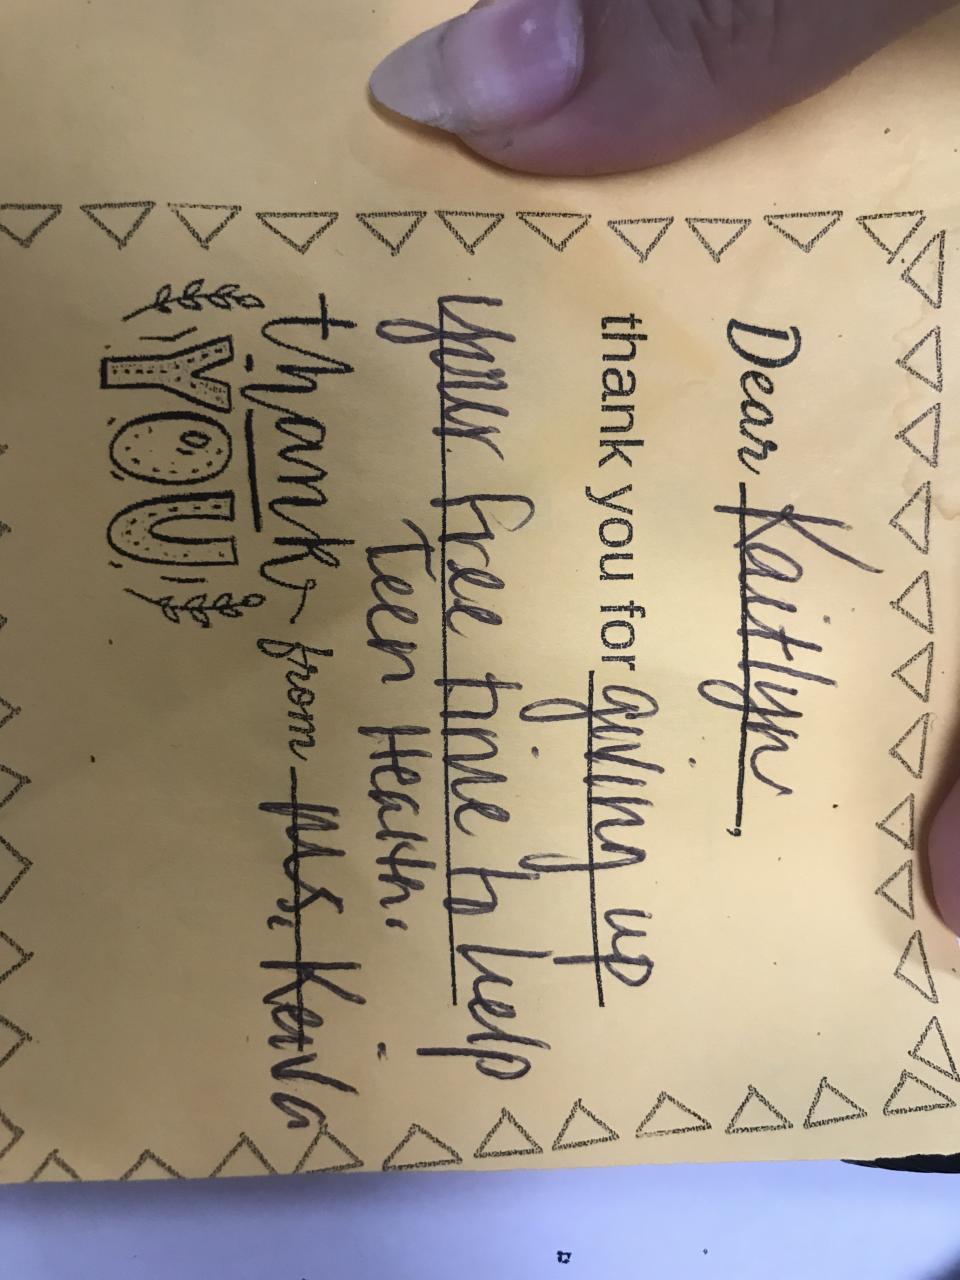 Dear Kaitlyn,
thank you for giving up
your free time to help
Teen Health.
thank from Ms. Keiva
YOU